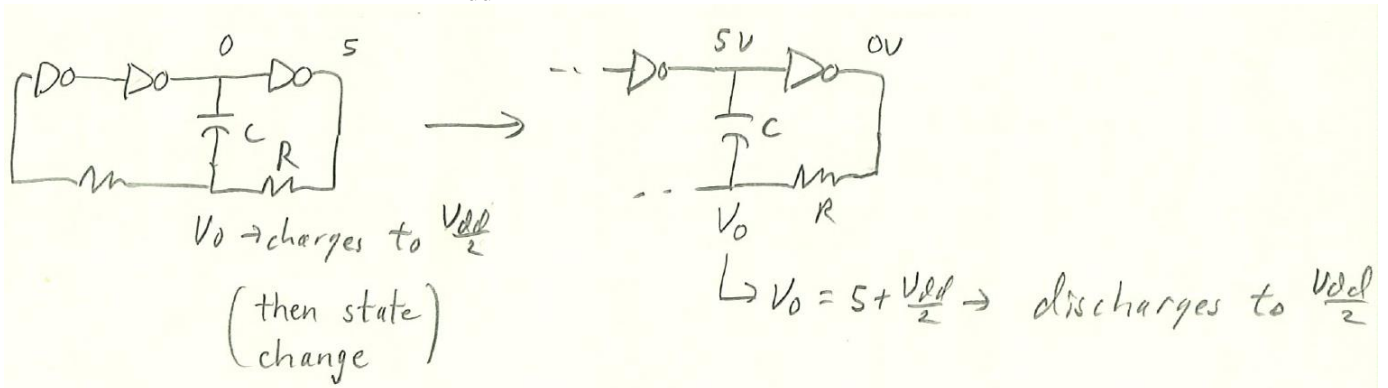 0 5
C
R
V0 → charges to Vdd/2
(then state
change)
5V 0V
C
V0 R
↳ V0 = 5 + Vdd/2 → discharges to Vdd/2